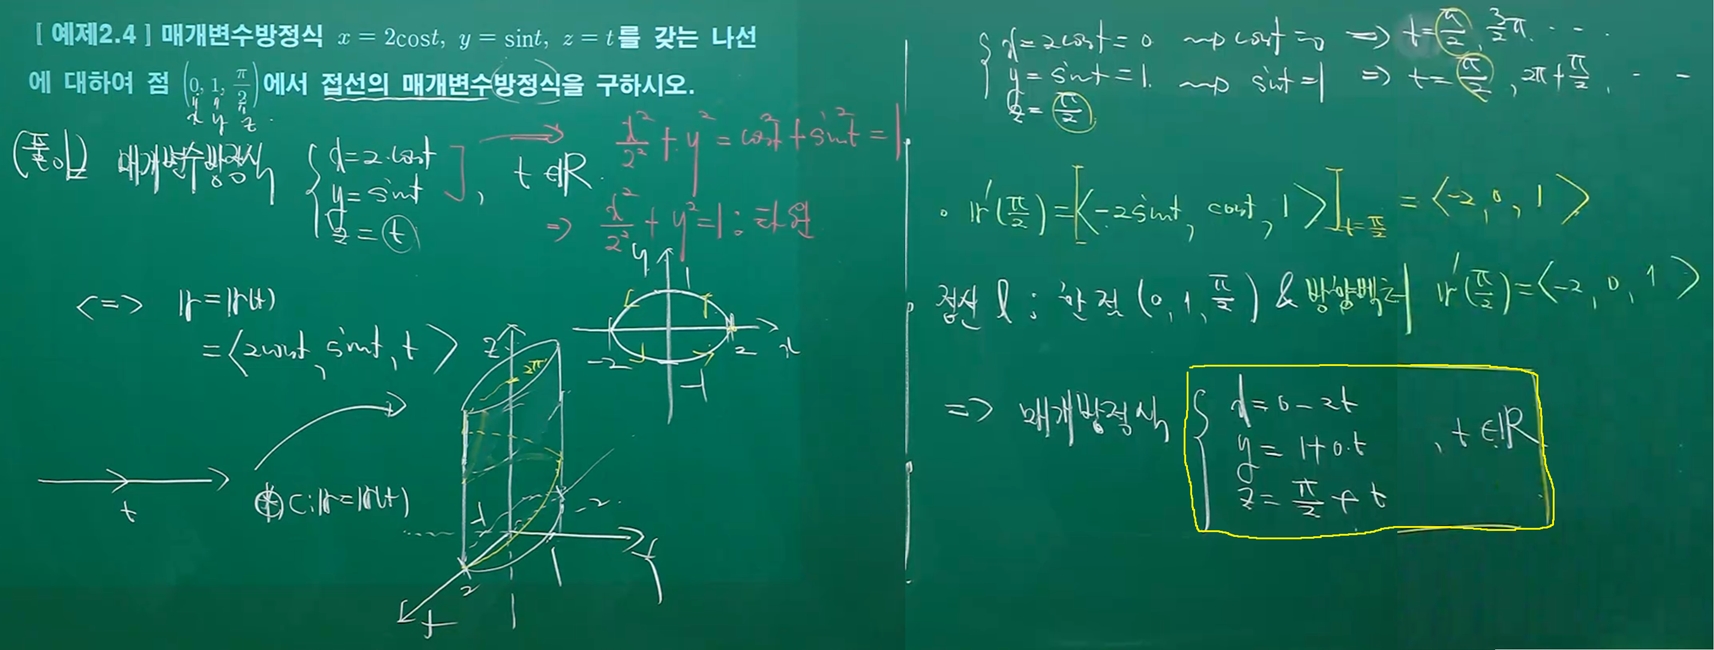 [ 예제2.4 ] 매개변수방정식 x = 2cost, y = sint, z = t를 갖는 나선
에 대하여 점 (0, 1, π/2)에서 접선의 매개변수방정식을 구하시오.
x y z
(풀이) 매개변수방정식 { x = 2·cost
y = sint
z = t , t∈ℝ
x²/2² + y² = cos²t + sin²t = 1
⇒ x²/2² + y² = 1 : 타원
<=> 𝕣 = 𝕣(t)
= <2cost, sint, t>
y
1
-2 2 x
-1
z
2π
t
(*) C : 𝕣 = 𝕣(t)
-1 -2
2 1 y
x
{ x = 2cost = 0 ⇝ cost = 0 ⇒ t = π/2, 3/2π, ...
y = sint = 1. ⇝ sint = 1 ⇒ t = π/2, 2π + π/2, ...
z = π/2
• 𝕣'(π/2) = [<-2sint, cost, 1>]t=π/2 = <-2, 0, 1>
접선 l : 한 점 (0, 1, π/2) & 방향벡터 𝕣'(π/2) = <-2, 0, 1>
⇒ 매개방정식 { x = 0 - 2t
y = 1 + 0·t , t∈ℝ
z = π/2 + t